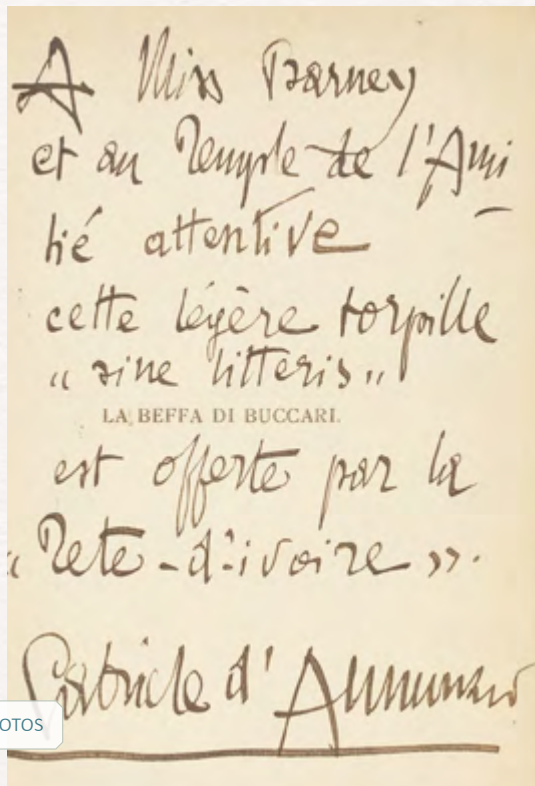 A Miss Barney
et au Temple de l'Ami
tié attentive
cette légère torpille
" sine litteris "
LA BEFFA DI BUCCARI.
est offerte par la
« Tete-d'ivoire ».
Gabriele d'Annunzio
OTOS